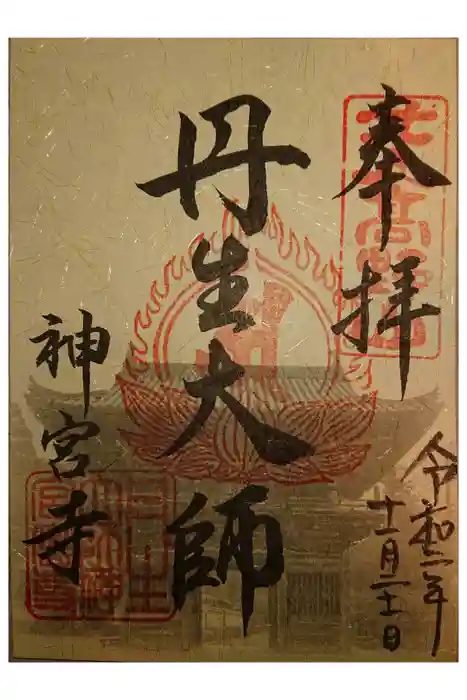 奉拝
令和二年
十一月二十一日
丹生大師
神宮寺